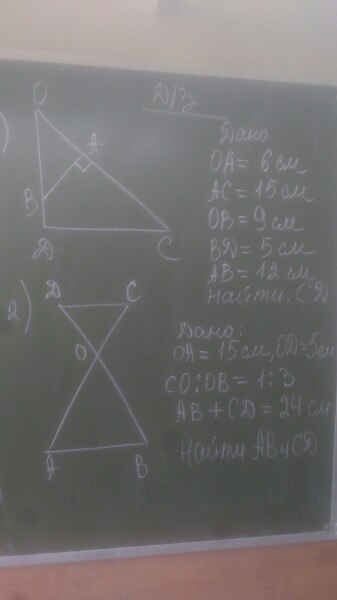 Д/З
)
O
A
B
Д
C
Дано
OA = 6 см
AC = 15 см
OB = 9 см
BД = 5 см
AB = 12 см
Найти. СД
2)
Д
C
O
A
B
Дано:
OA = 15 см, OД = 5 см
CO : OB = 1 : 3
AB + CД = 24 см
Найти AB и CД